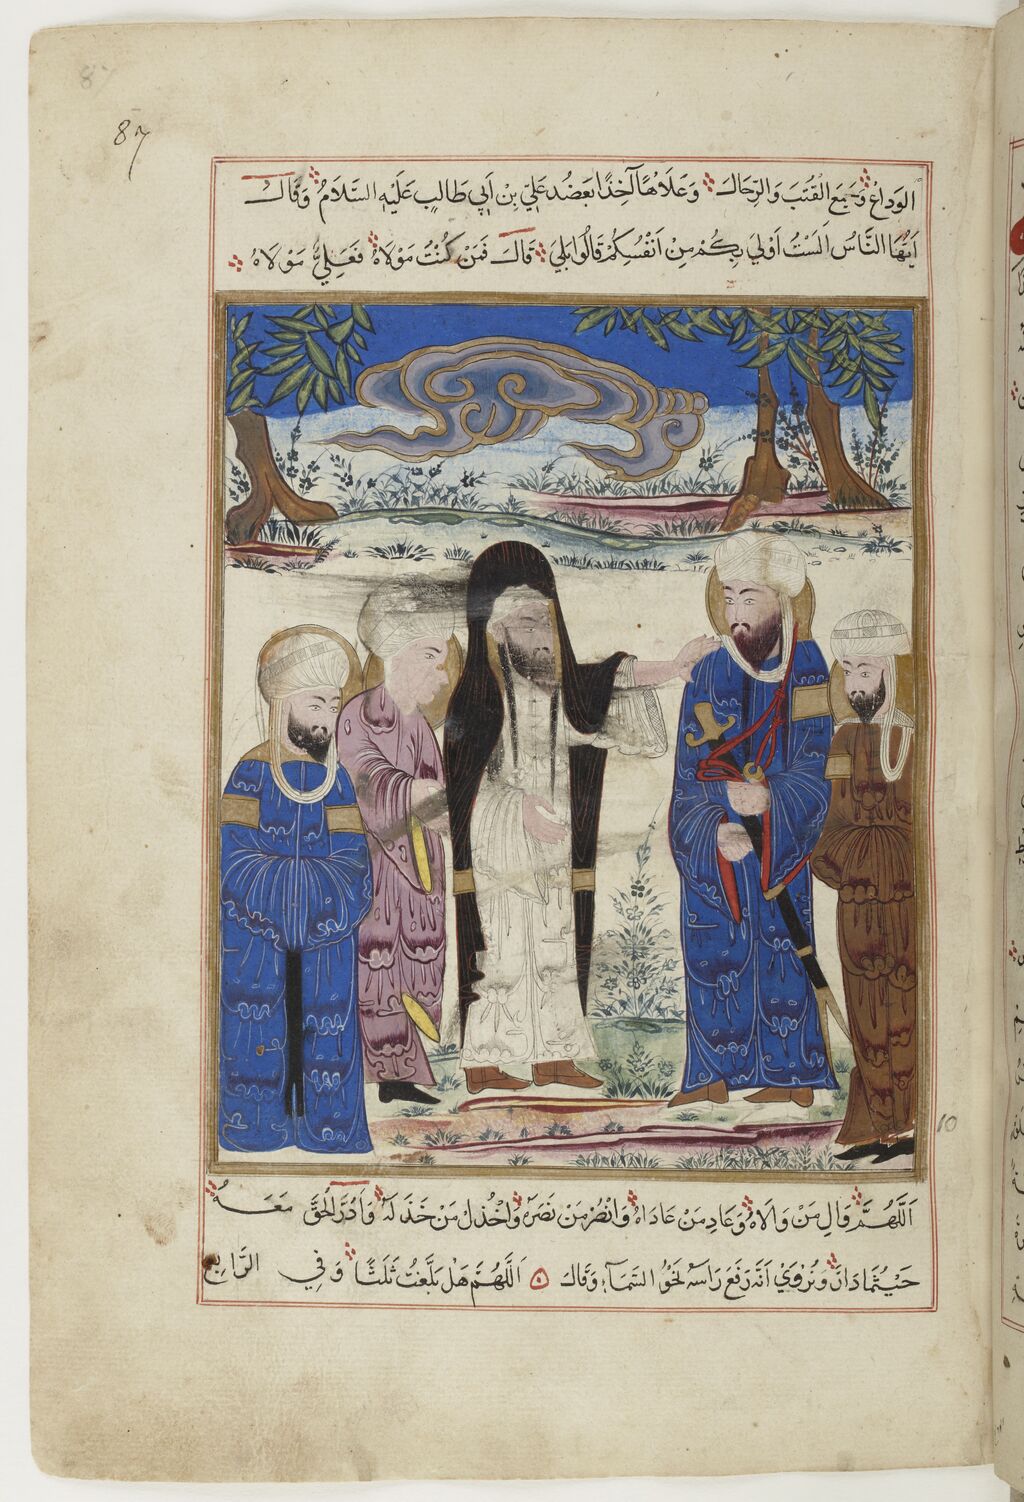 87
87
الوَدَاعْ وَجَمَعَ القُتَبَ وَالرِّحَالَ وَعَلَاهَا آخِذًا بَعَضُدِ عَلِيّ بْنِ اَبِي طَالِبٍ عَلَيْهِ السَّلَامُ وَقَالَ
اَيُّهَا النَّاسُ اَلَسْتُ اَوْلَي بِكُمْ مِنْ اَنْفُسِكُمْ قَالُوا بَلَي قَالَ فَمَنْ كُنْتُ مَوْلَاهُ فَعَلِيٌّ مَوْلَاهُ
10
اَللَّهُمَّ وَالِ مَنْ وَالَاهُ وَعَادِ مَنْ عَادَاهُ وَانْصُرْ مَنْ نَصَرَهُ وَاخْذُلْ مَنْ خَذَلَهُ وَاَدِرِ الْحَقَّ مَعَهُ
حَيْثُمَا دَارَ وَيُرْوَي اَنَّهُ رَفَعَ رَاسَهُ نَحْوَ السَّمَاءِ وَقَالَ اَللَّهُمَّ هَلْ بَلَّغْتُ ثَلَثًا وَفِي الرَّابِعِ